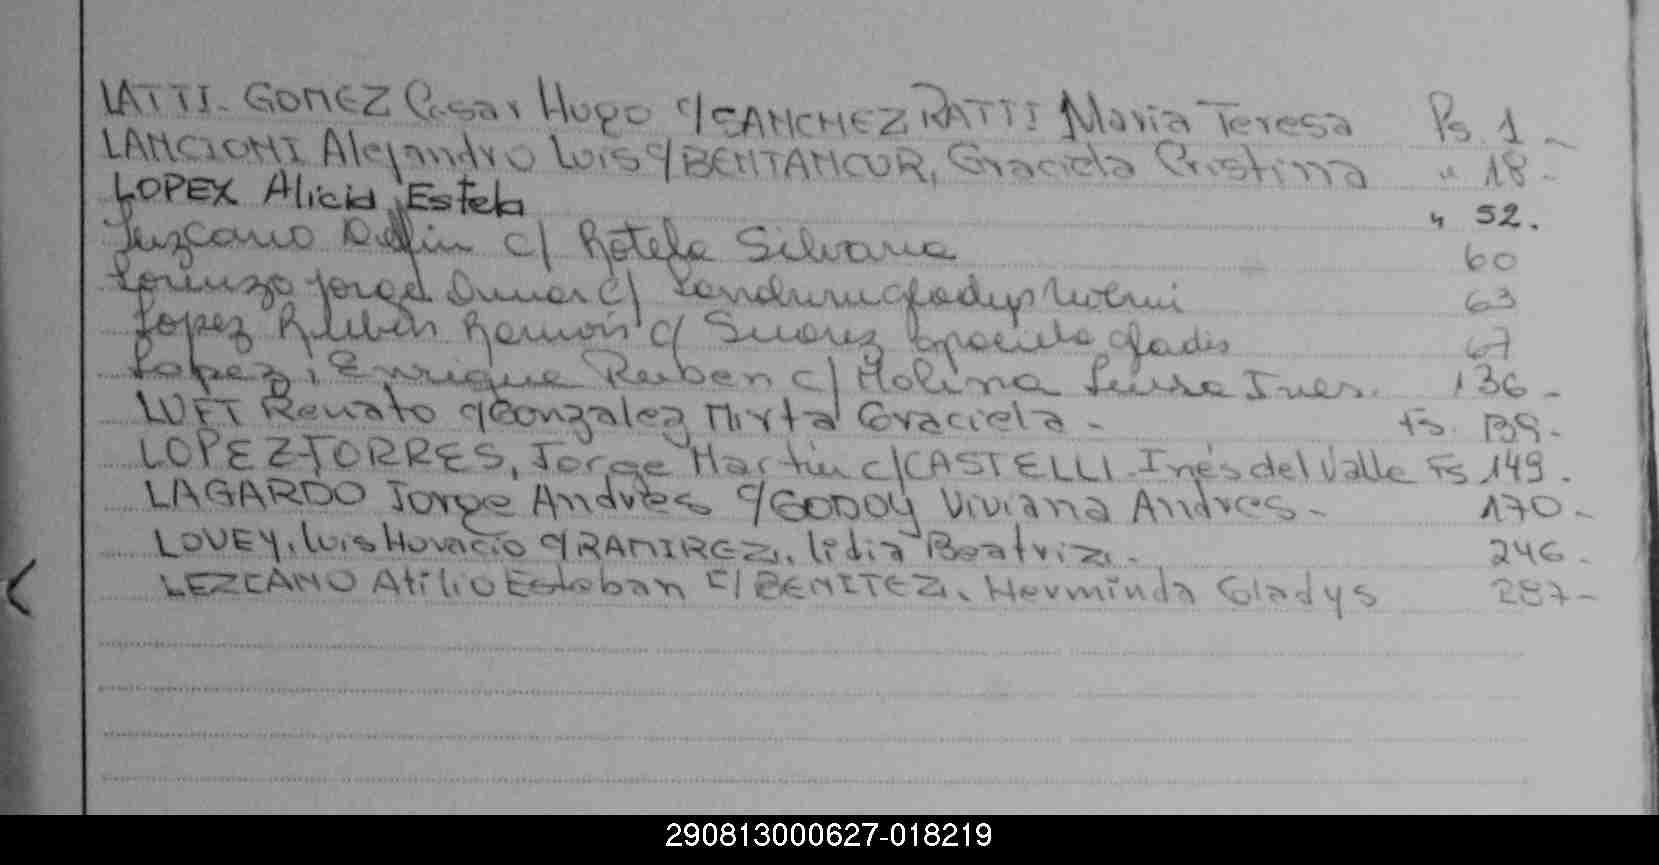 LATTI. GOMEZ Cesar Hugo c/SANCHEZ RATTI Maria Teresa Fs. 1 -
LANCIONI Alejandro Luis c/BENTANCUR, Graciela Cristina " 18 -
LOPEX Alicia Estela " 52.
Lezcano Delfin c/ Rotela Silvana 60
Lorenzo Jorge Omar c/ Gladys Noemi 63
Lopez Ruben Ramon c/ Suarez Graciela Gladis 67
Lopez, Enrique Ruben c/ Molina Luisa Ines. 136 -
LUFT Renato c/Gonzalez Mirta Graciela - Fs. 139 -
LOPEZ TORRES, Jorge Martin c/CASTELLI - Inés del Valle Fs 149.
LAGARDO Jorge Andrés c/GODOY Viviana Andres - 170 -
LOVEY, Luis Horacio c/RAMIREZ, Lidia Beatriz - 246 -
LEZCANO Atilio Esteban c/ BENITEZ, Herminda Gladys 287 -
290813000627-018219